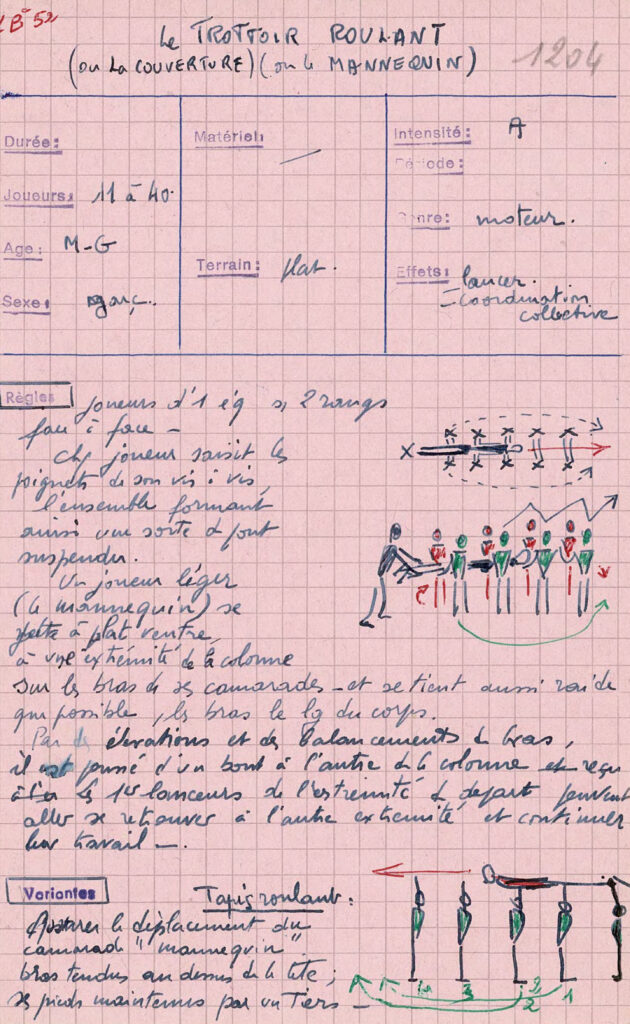 B 52
Le TROTTOIR ROULANT
(ou LA COUVERTURE) (ou le MANNEQUIN)
1204
Durée:
Joueurs: 11 à 40.
Age: M-G
Sexe: garç.
Matériel: —
Terrain: plat.
Intensité: A
Période:
Genre: moteur.
Effets: lancer.
– coordination
collective
Règles
joueurs d'1 éq s, 2 rangs
face à face –
chq joueur saisit les
poignets de son vis à vis,
l'ensemble formant
ainsi une sorte d pont
suspendu.
Un joueur léger
(le mannequin) se
jette à plat ventre,
à une extrémité de la colonne
sur les bras de ses camarades – et se tient aussi raide
que possible, les bras le lg du corps.
Par des élévations et des balancements d bras,
il est passé d'un bout à l'autre de la colonne et reçu
les 1er lanceurs de l'extrémité d départ peuvent
aller se retrouver à l'autre extrémité et continuer
leur travail –.
Variantes
Tapis roulant:
le déplacement du
camarade "mannequin"
bras tendus au dessus de la tête;
ses pieds maintenus par un Tiers –
3 2 1
2